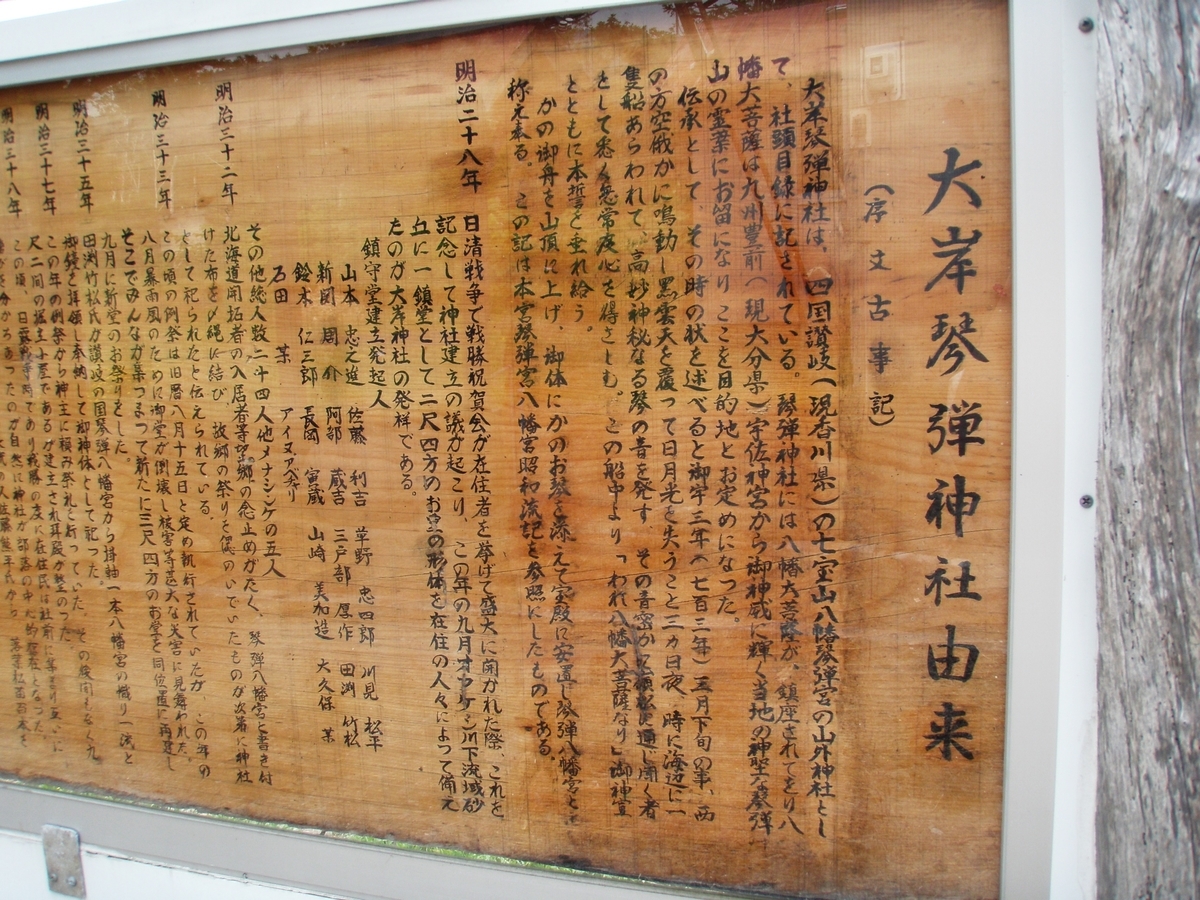 大岸琴弾神社由来
(序文古事記)
大岸琴弾神社は、四国讃岐(現香川県)の七宝山八幡琴弾宮の山外神社とし
て、社頭目録に記されている。琴弾神社には八幡大菩薩が、鎮座されてをり八
幡大菩薩は九州豊前(現大分県)宇佐神宮から御神威に輝く当地の神聖な琴弾
山の霊薬にお留になりここを目的地とお定めになった。
伝承として、その時の状を述べると御宇三年(七百三年)三月下旬の事、西
の方空俄かに鳴動し黒雲天を覆って日月光を失うこと三ヵ日夜、時に海辺に一
隻船あらわれて、高妙神秘なる琴の音を発す、その音密か
として悉く無常疫心を得さしむ。この船中より「われ八幡大菩薩なり」御神宣
とともに本誓を垂れ給う。
かの御舟を山頂に上げ、御体にかのお琴を添えて宝殿に安置し琴弾八幡宮と
称え奉る。この記は本宮琴弾宮八幡宮昭和流記を参照にしたものである。
明治二十八年 日清戦争で戦勝祝賀会が在住者を挙げて盛大に開かれた際、これを
記念して神社建立の議が起こり、この年の九月オフケシ川下流域砂
丘に一鎮堂として二尺四方のお宮の形体を在住の人々によって備え
たのが大岸神社の発祥である。
鎮守堂建立発起人
山本忠之進 佐藤利吉 草野忠四郎 川見松平
新岡周介 阿部蔵吉 三戸部厚作 田渕竹松
鈴木仁三郎 長岡寅蔵 山崎美加造 大久保某
石田某 アイヌアベリ
その他総人数二十四人他メナシンケの五人
明治三十二年 北海道開拓者の入居者等望郷の念止めがたく、琴弾八幡宮と書き付
けた布を〆縄に結び、故郷の祭りを偲のいでいたものが次第に神社
として祀られたと伝えられている。
この頃の例祭は旧暦八月十五日と定め執行されていたが、この年の
明治三十三年 八月暴雨風のために御堂が倒壊し核宮等甚大な災害に見舞われた。
そこでみんなが集つまって新たに三尺四方のお堂を同位置に再建し
九月に新堂のお祭りをした。
明治三十五年 田渕竹松氏が讃岐の国琴弾八幡宮から掛軸一本八幡宮の幟り一流と
御錢を拝領し奉納して御神体として祀った。
明治三十七年 この年の例祭から神主に頼み祭礼を行っていた。その後間もなく九
尺二間の
この頃、日露戦争
明治三十八年